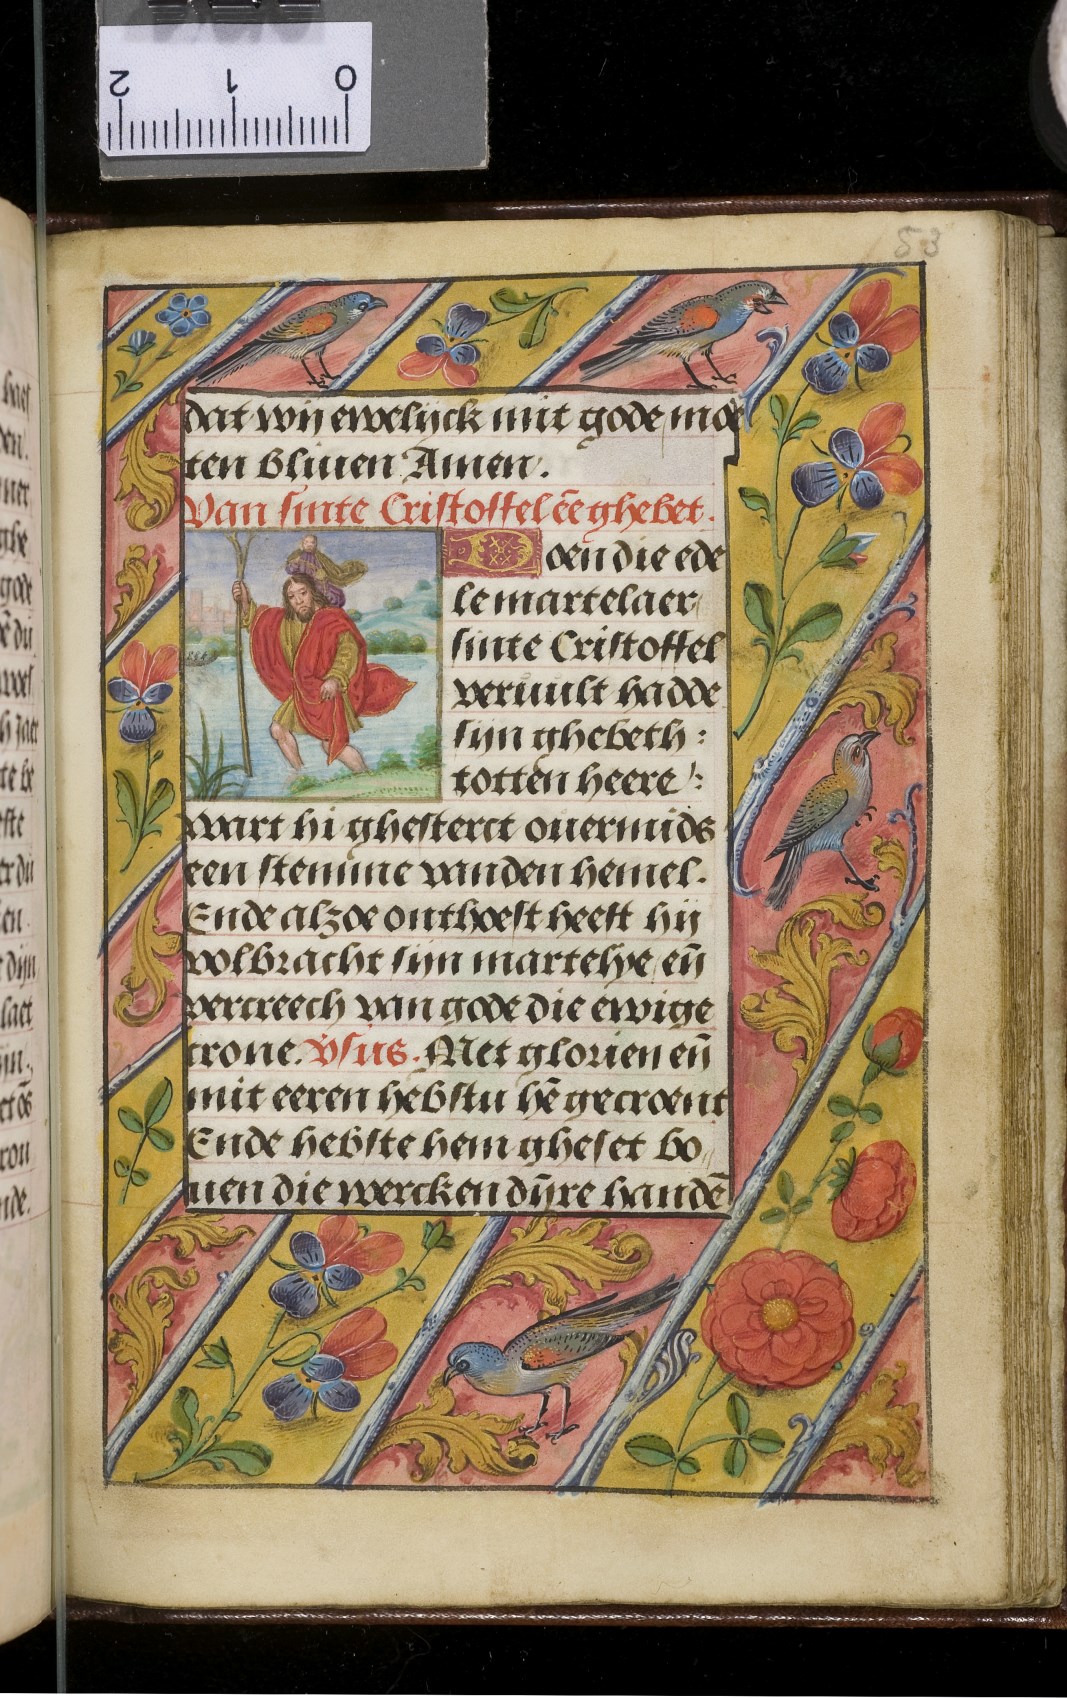 2 1 0
53
dat wij ewelijck mit gode moe
ten bliuen Amen.
Van sinte Cristoffel ēē ghebet.
Doen die ede
le martelaer
sinte Cristoffel
veruult hadde
sijn ghebeth:
totten heere:
wart hi ghesterct ouermids
een stemme vanden hemel.
Ende alzoe onthoest heeft hij
volbracht sijn martelye eñ
vercreech van gode die ewige
crone. V̄sus. Met glorien eñ
mit eeren hebstu hē gecroent
Ende hebste hem gheset bo,,
uen die wercken dijre handē